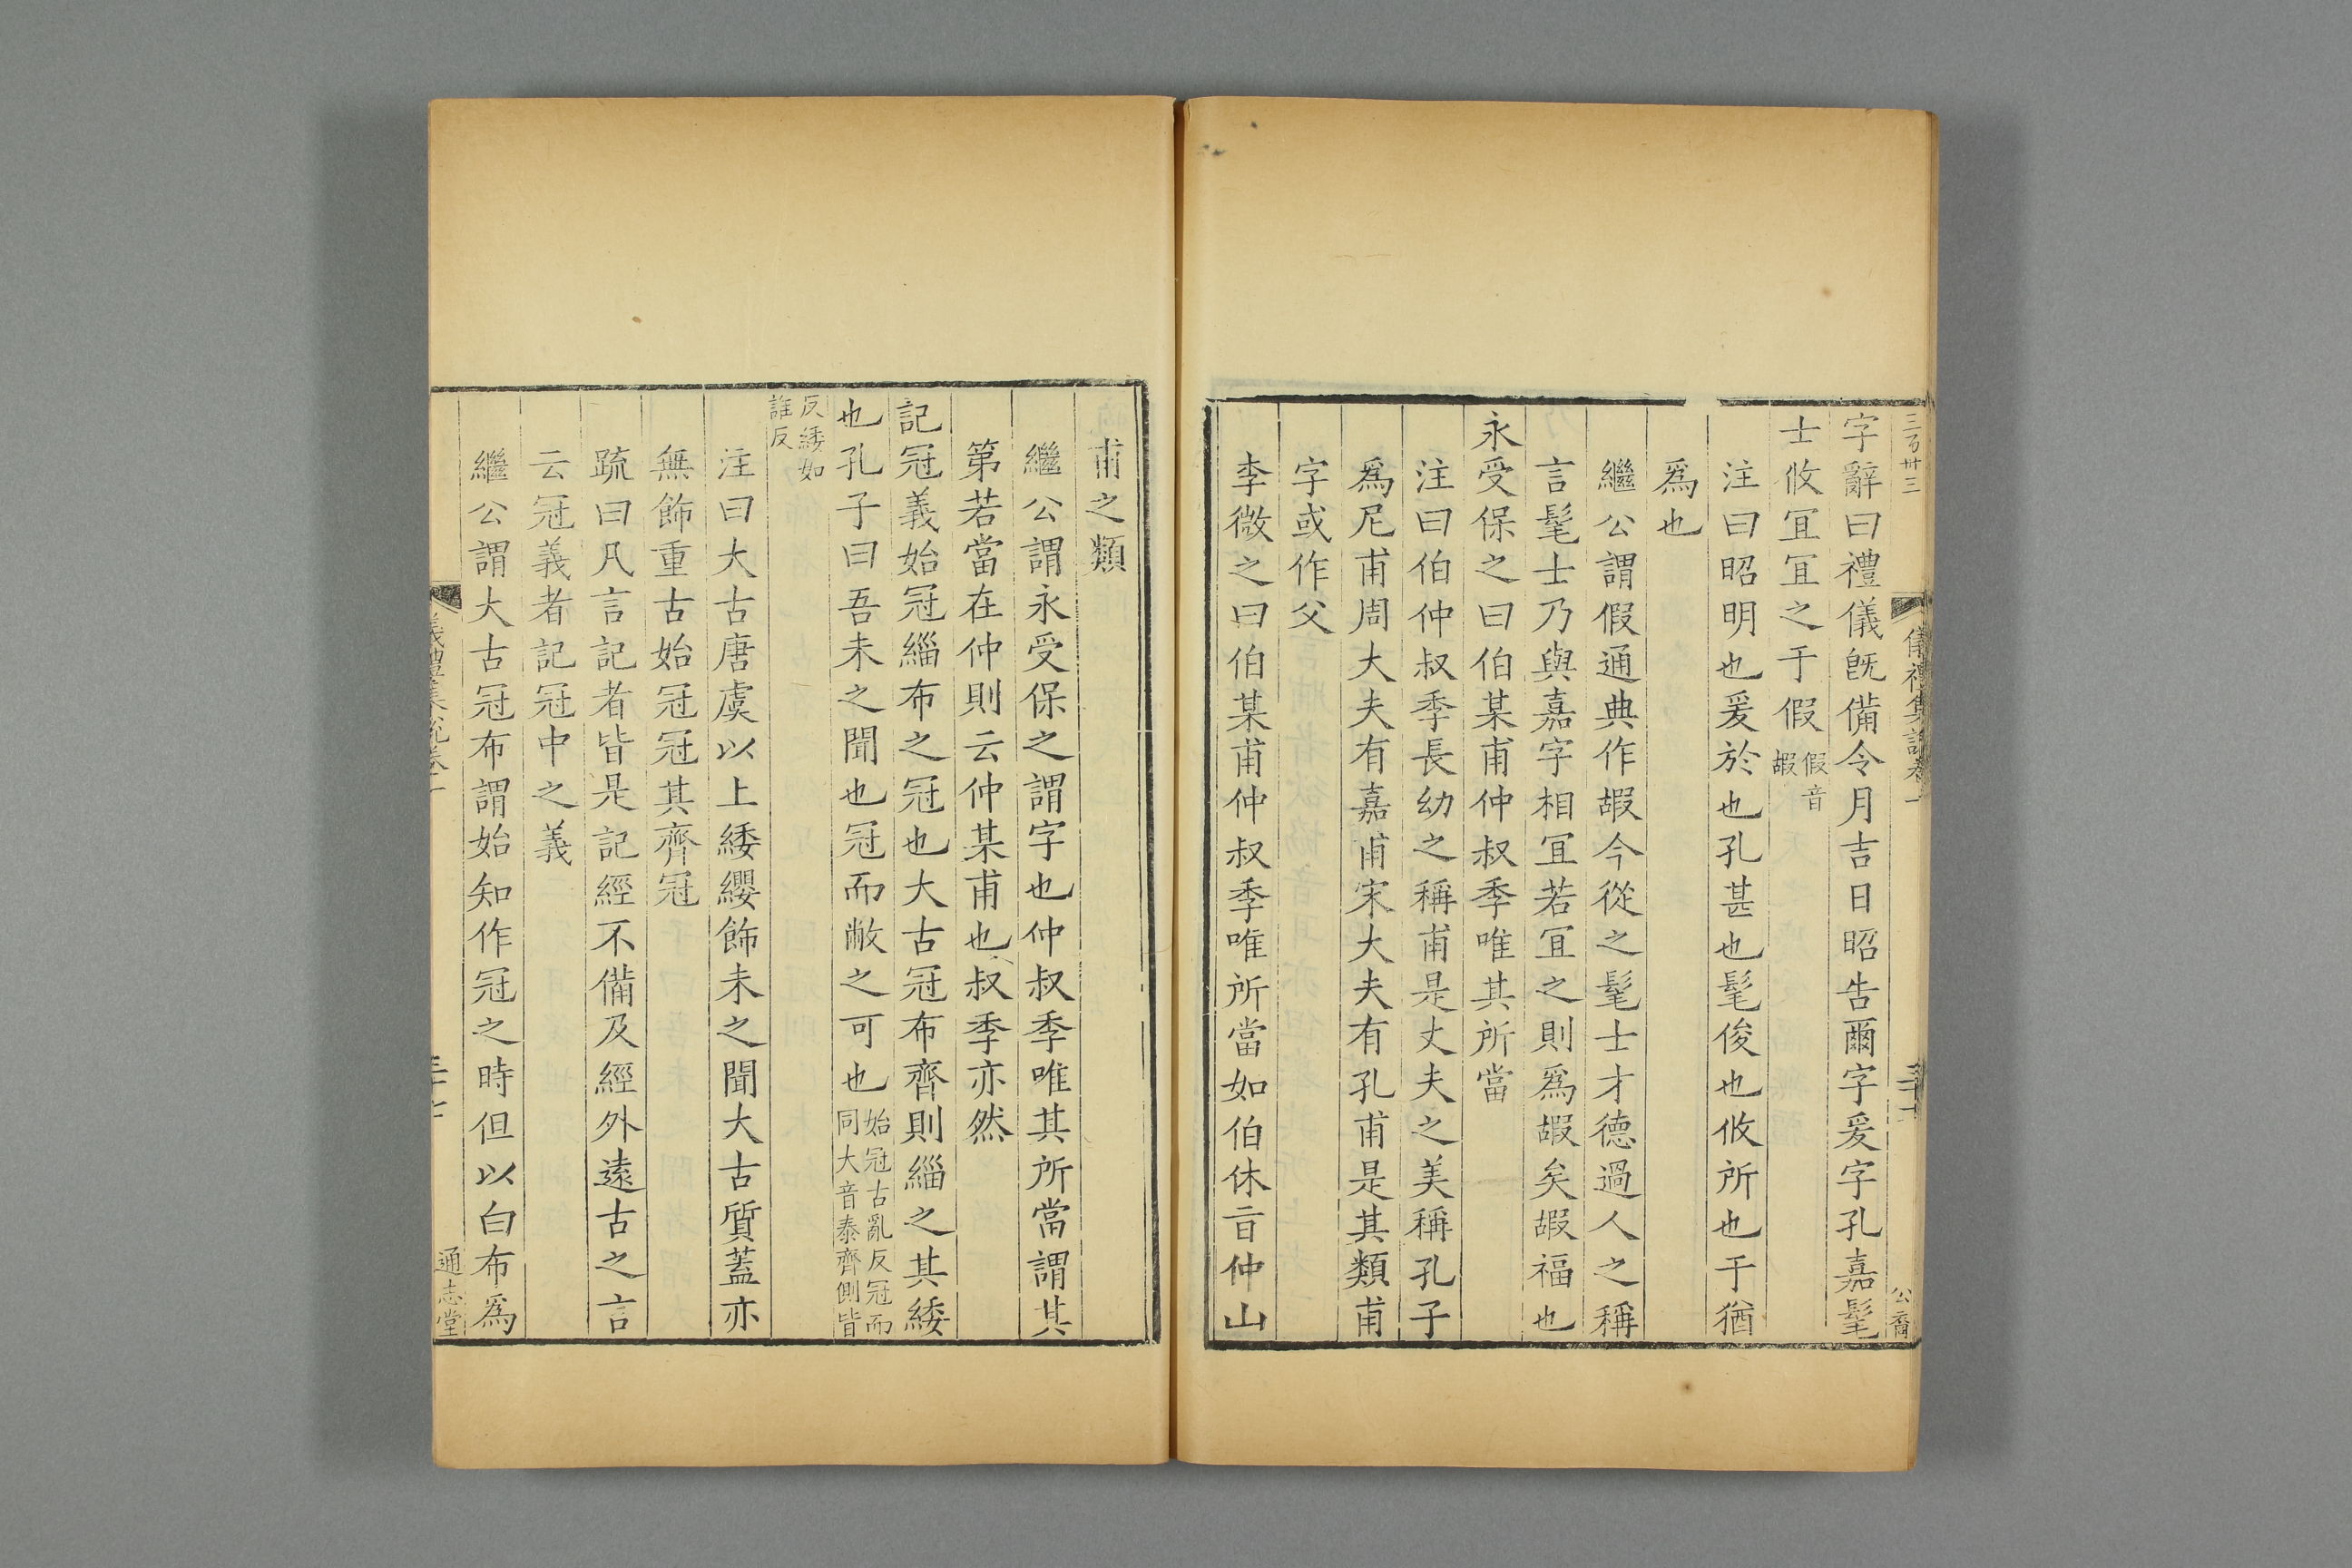 三百卅三
儀禮集說卷一
公裔
字辭曰禮儀旣備令月吉日昭告爾字爰字孔嘉髦
士攸宜宜之于假假音嘏
注曰昭明也爰於也孔甚也髦俊也攸所也于猶
爲也
繼公謂假通典作嘏今從之髦士才德過人之稱
言髦士乃與嘉字相宜若宜之則爲嘏矣嘏福也
永受保之曰伯某甫仲叔季唯其所當
注曰伯仲叔季長幼之稱甫是丈夫之美稱孔子
爲尼甫周大夫有嘉甫宋大夫有孔甫是其類甫
字或作父
李微之曰伯某甫仲叔季唯所當如伯休㫖仲山
甫之類
繼公謂永受保之謂字也仲叔季唯其所當謂其
第若當在仲則云仲某甫也叔季亦然
記冠義始冠緇布之冠也大古冠布齊則緇之其緌
也孔子曰吾未之聞也冠而敝之可也始冠古亂反冠而同大音泰齊側皆
反緌如誰反
注曰大古唐虞以上緌纓飾未之聞大古質蓋亦
無飾重古始冠冠其齊冠
疏曰凡言記者皆是記經不備及經外遠古之言
云冠義者記冠中之義
繼公謂大古冠布謂始知作冠之時但以白布爲
儀禮集說卷一
通志堂